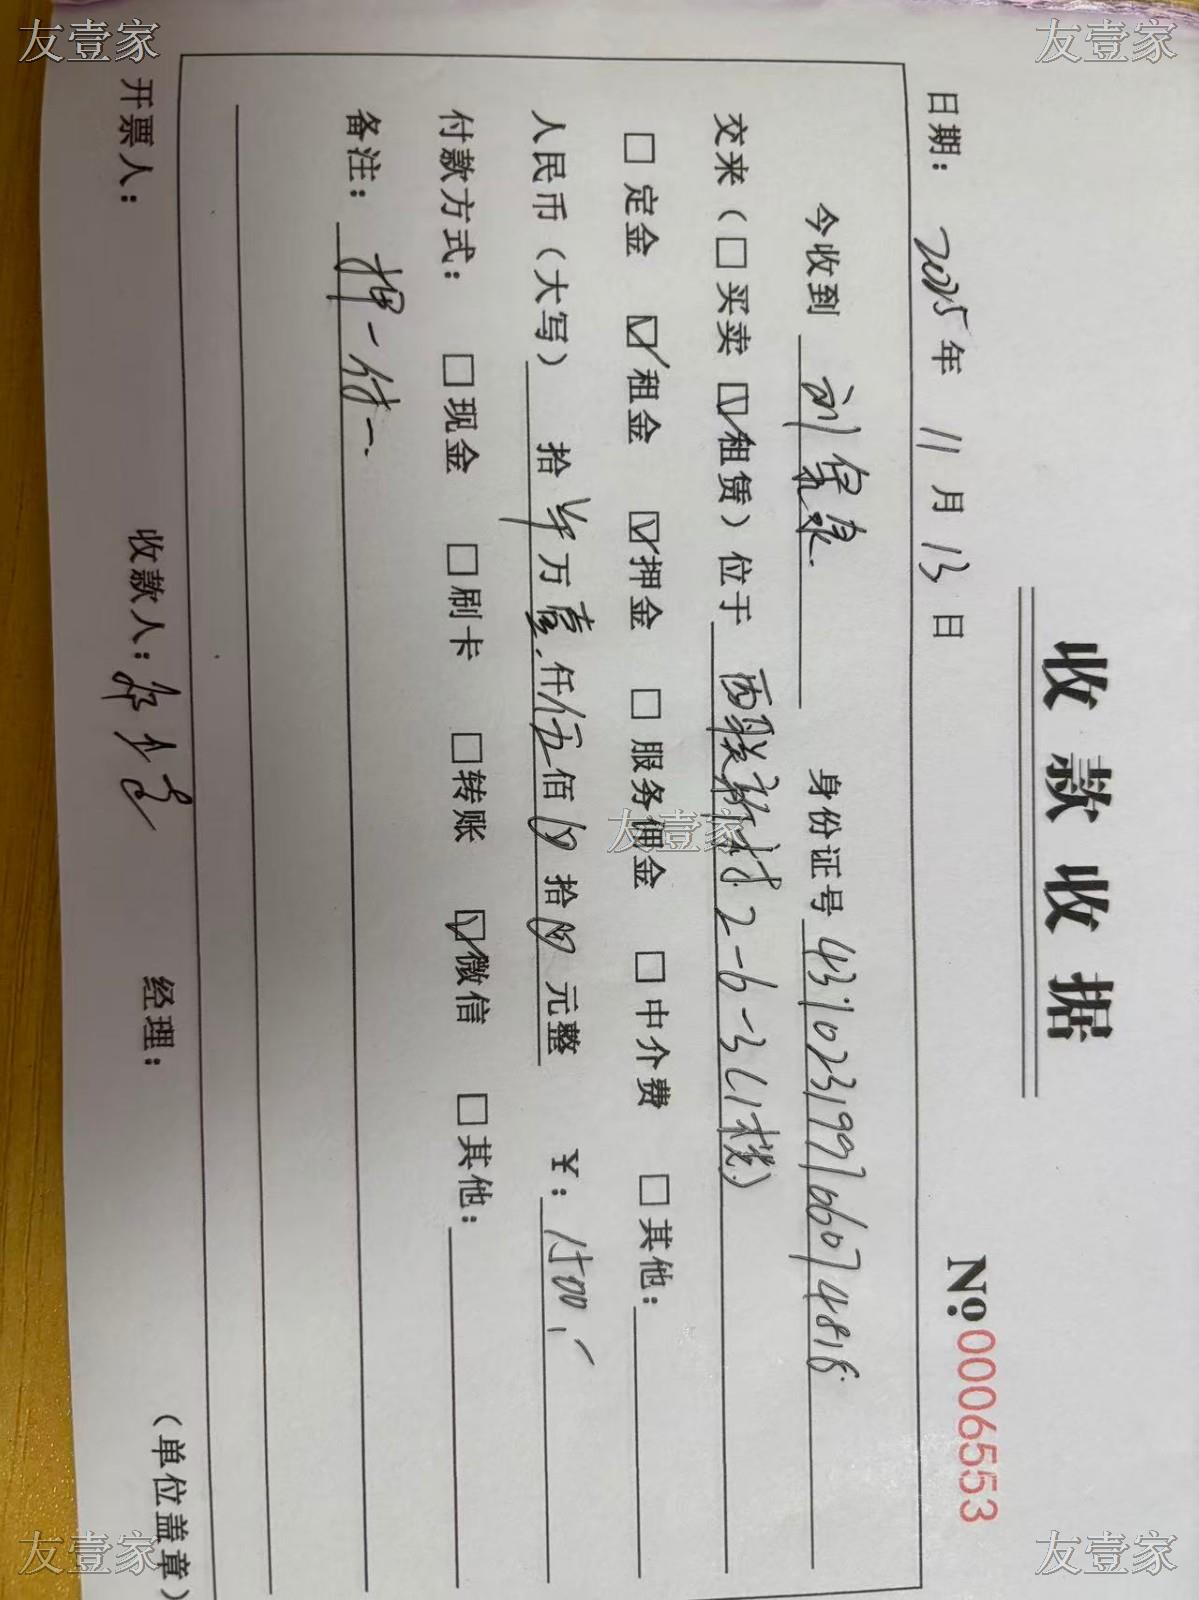 友壹家
友壹家
收款收据
No.0006553
日期: 2025年 11月 13日
今收到 刘 康 身份证号 431023199706074818
交来(□买卖 ☑租赁)位于 西联新村2-6-3(1楼)
□ 定金 ☑租金 ☑押金 □ 服务佣金 □ 中介费 □ 其他:
人民币(大写) 拾 万 壹 仟 伍 佰 拾 元整 ¥: 1500
付款方式: □现金 □刷卡 □转账 ☑微信 □其他:
备注: 押一付一.
开票人: 收款人: 经理: (单位盖章)
友壹家
友壹家
友壹家